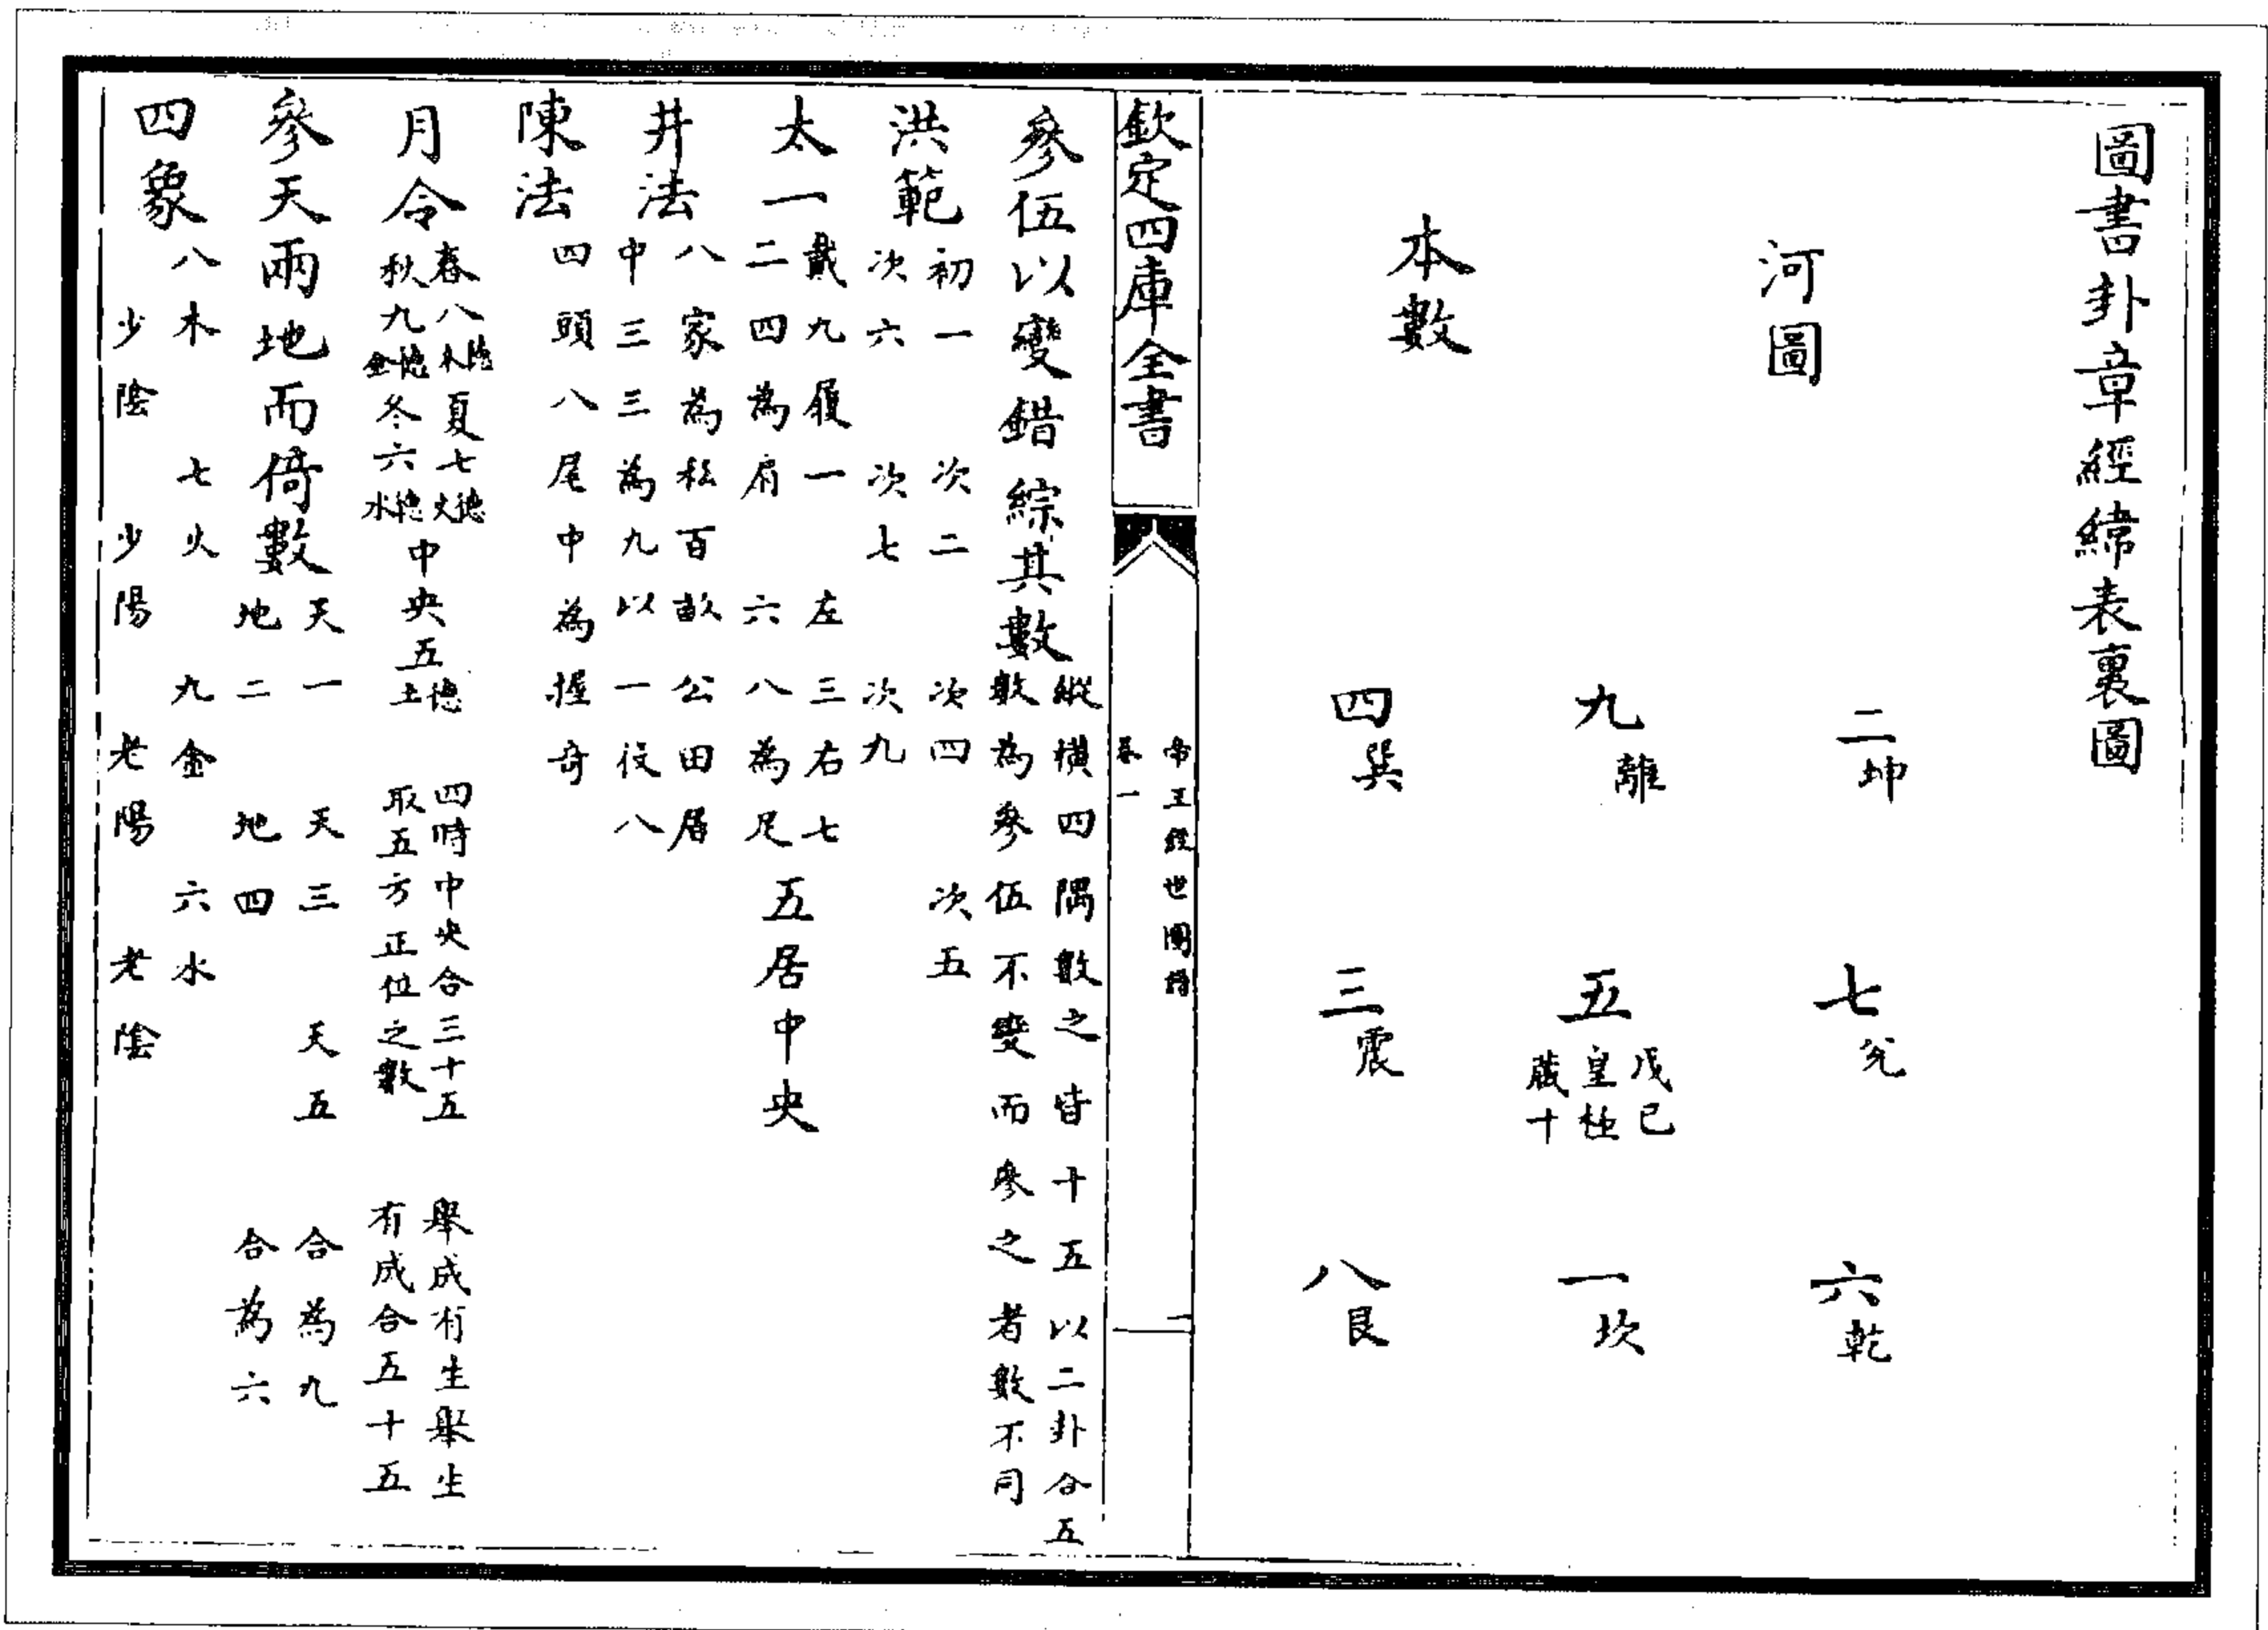 圖書卦章經緯表裏圖
河圖
本數
二坤
七兌
六乾
九離
五
戊己
皇極
藏十
一坎
四巽
三震
八艮
欽定四庫全書
帝王經世圖譜
卷一
一
參伍以變錯綜其數
縱橫四隅數之皆十五以二卦合五
數為參伍不變而參之者數不同
洪範
初一 次二 次四 次五
次六 次七 次九
太一
戴九履一 左三右七
二四為肩 六八為足
五居中央
井法
八家為私百畝公田居
中三三為九以一役八
陳法
四頭八尾中為握奇
月令
春八木德夏七火德
秋九金德冬六水德
中央五土德
四時中央合三十五
取五方正位之數
舉成有生舉生
有成合五十五
參天兩地而倚數
天一 天三 天五 合為九
地二 地四 合為六
四象
八木 七火 九金 六水
少陰 少陽 老陽 老陰